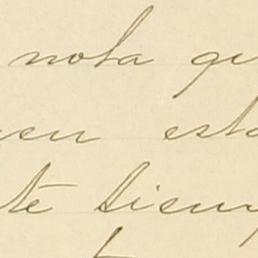 nota qu
uen esta
te siem